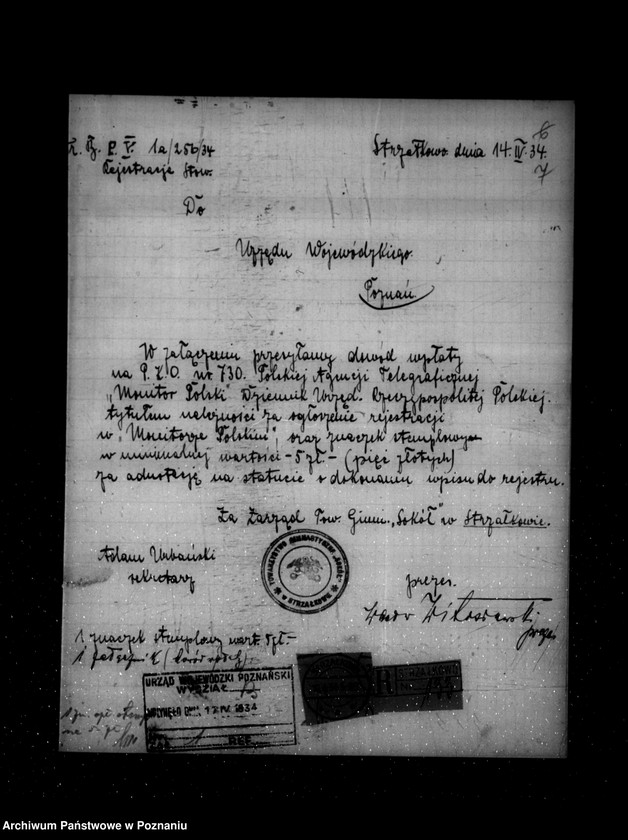 1a/256/34
Rejestracja Stow.
Strzałkowo dnia 14.IV.34.
6
7
Do
Urzędu Wojewódzkiego.
Poznań.
W załączeniu przesyłamy dowód wpłaty
na P.K.O. nr 730. Polskiej Agencji Telegraficznej
„Monitor Polski" Dziennik Urzęd. Rzeczypospolitej Polskiej.
tytułem należności za ogłoszenie rejestracji
w „Monitorze Polskim", oraz znaczek stemplowy
w nominalnej wartości - 5 zł. - (pięć złotych)
za adnotację na statucie o dokonaniu wpisu do rejestru.
Za Zarząd Tow. Gimn. „Sokół" w Strzałkowie.
Adam Urbański
sekretarz
prezes.
TOWARZYSTWO GIMNASTYCZNE „SOKÓŁ"
w STRZAŁKOWIE
1 znaczek stemplowy wart. 5 zł. -
URZĄD WOJEWÓDZKI POZNAŃSKI
WYDZIAŁ
WPŁYNĘŁO DNIA 17 IV 1934
REF.
R STRZAŁKOWO
Archiwum Państwowe w Poznaniu